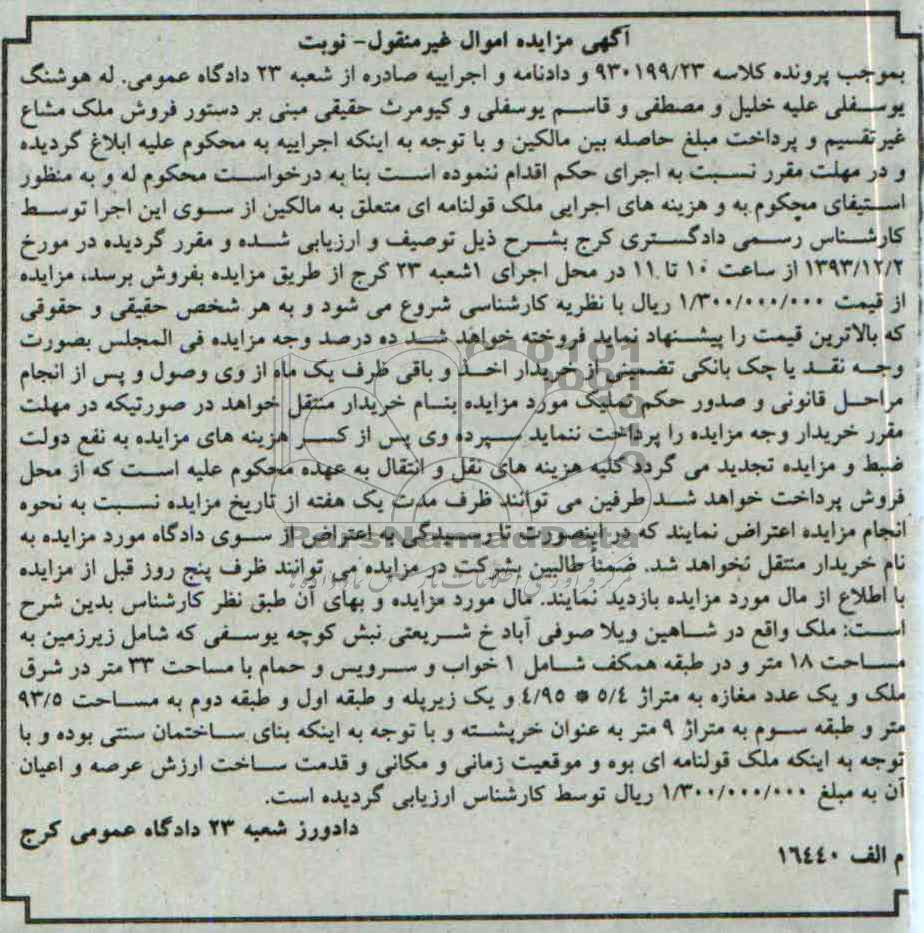 آگهی مزایده اموال غیرمنقول- نوبت
بموجب پرونده کلاسه ۹۳۰۱۹۹/۲۳ و دادنامه و اجراییه صادره از شعبه ۲۳ دادگاه عمومی. له هوشنگ
یوسفلی علیه خلیل و مصطفی و قاسم یوسفلی و کیومرث حقیقی مبنی بر دستور فروش ملک مشاع
غیرتقسیم و پرداخت مبلغ حاصله بین مالکین و با توجه به اینکه اجراییه به محکوم علیه ابلاغ گردیده
و در مهلت مقرر نسبت به اجرای حکم اقدام ننموده است بنا به درخواست محکوم له و به منظور
استیفای محکوم به و هزینه های اجرایی ملک قولنامه ای متعلق به مالکین از سوی این اجرا توسط
کارشناس رسمی دادگستری کرج بشرح ذیل توصیف و ارزیابی شده و مقرر گردیده در مورخ
۱۳۹۳/۱۲/۲ از ساعت ۱۰ تا ۱۱ در محل اجرای ۱شعبه ۲۳ کرج از طریق مزایده بفروش برسد، مزایده
از قیمت ۱/۳۰۰/۰۰۰/۰۰۰ ریال با نظریه کارشناسی شروع می شود و به هر شخص حقیقی و حقوقی
که بالاترین قیمت را پیشنهاد نماید فروخته خواهد شد ده درصد وجه مزایده فی المجلس بصورت
وجه نقد یا چک بانکی تضمینی از خریدار اخذ و باقی ظرف یک ماه از وی وصول و پس از انجام
مراحل قانونی و صدور حکم تملیک مورد مزایده بنام خریدار منتقل خواهد در صورتیکه در مهلت
مقرر خریدار وجه مزایده را پرداخت ننماید سپرده وی پس از کسر هزینه های مزایده به نفع دولت
ضبط و مزایده تجدید می گردد کلیه هزینه های نقل و انتقال به عهده محکوم علیه است که از محل
فروش پرداخت خواهد شد طرفین می توانند ظرف مدت یک هفته از تاریخ مزایده نسبت به نحوه
انجام مزایده اعتراض نمایند که دراینصورت تا رسیدگی به اعتراض از سوی دادگاه مورد مزایده به
نام خریدار منتقل نخواهد شد. ضمناً طالبین بشرکت در مزایده می توانند ظرف پنج روز قبل از مزایده
با اطلاع از مال مورد مزایده بازدید نمایند. مال مورد مزایده و بهای آن طبق نظر کارشناس بدین شرح
است: ملک واقع در شاهین ویلا صوفی آباد خ شریعتی نبش کوچه یوسفی که شامل زیرزمین به
مساحت ۱۸ متر و در طبقه همکف شامل ۱ خواب و سرویس و حمام با مساحت ۳۳ متر در شرق
ملک و یک عدد مغازه به متراژ ۵/۴ * ۴/۹۵ و یک زیرپله و طبقه اول و طبقه دوم به مساحت ۹۳/۵
متر و طبقه سوم به متراژ ۹ متر به عنوان خرپشته و با توجه به اینکه بنای ساختمان سنتی بوده و با
توجه به اینکه ملک قولنامه ای بوه و موقعیت زمانی و مکانی و قدمت ساخت ارزش عرصه و اعیان
آن به مبلغ ۱/۳۰۰/۰۰۰/۰۰۰ ریال توسط کارشناس ارزیابی گردیده است.
دادورز شعبه ۲۳ دادگاه عمومی کرج
م الف ۱۶۴۴۰
ParsNamadData